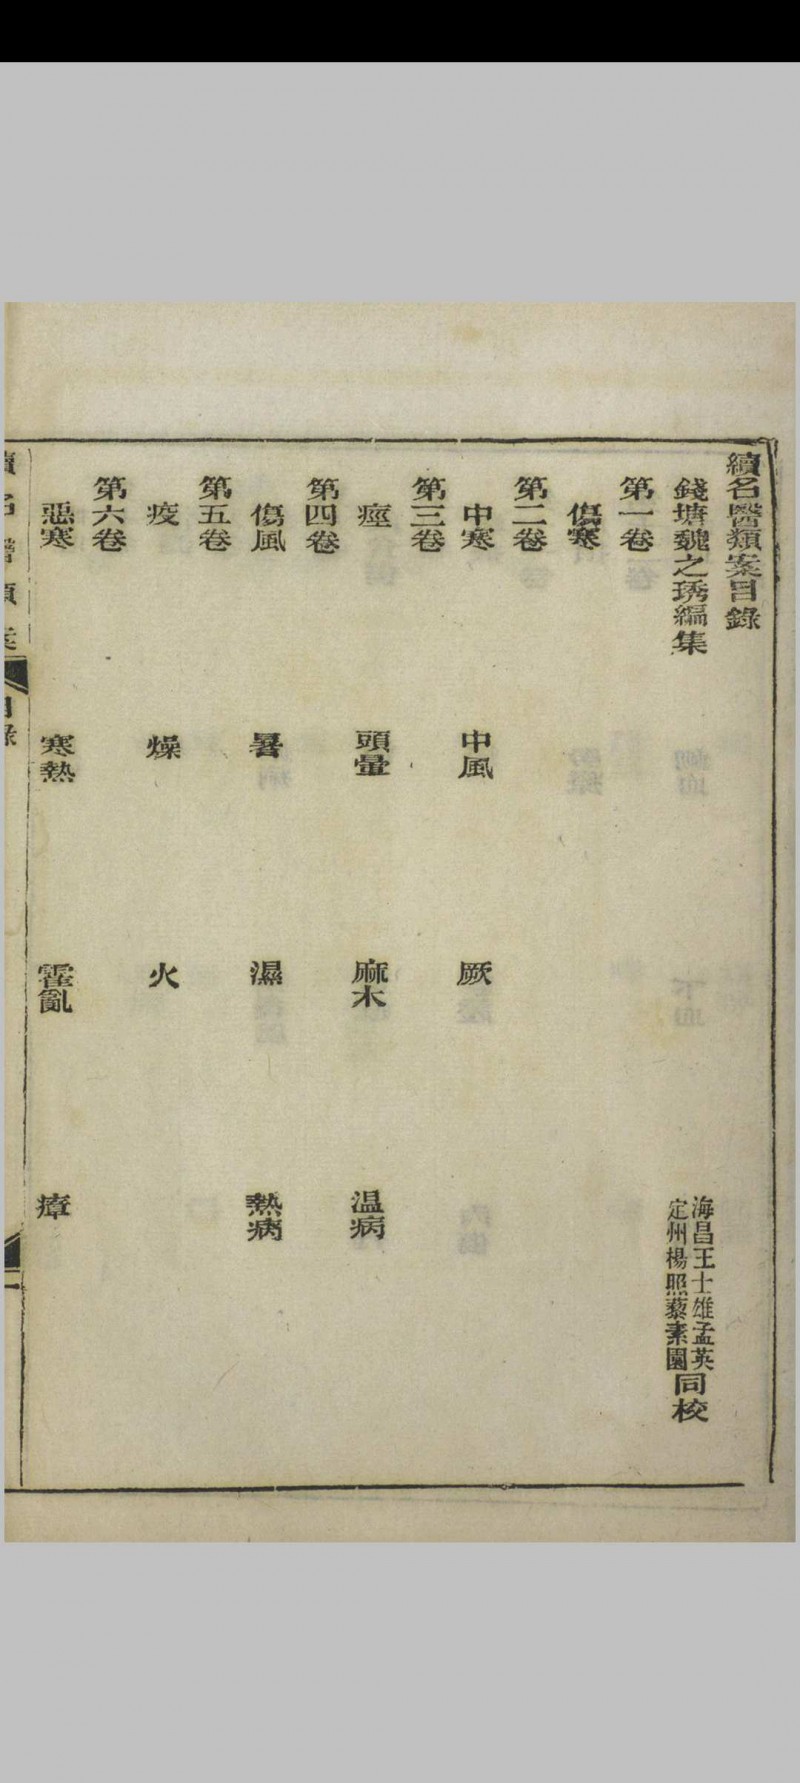 續名醫類案目錄
錢塘魏之琇編集
海昌王士雄孟英
定州楊照藜素園
同校
第一卷
傷寒
第二卷
中寒 中風 厥
第三卷
痙 頭暈 麻木 温病
第四卷
傷風 暑 濕 熱病
第五卷
疫 燥 火
第六卷
惡寒 寒熱 霍亂 瘴
續名醫類案 目錄